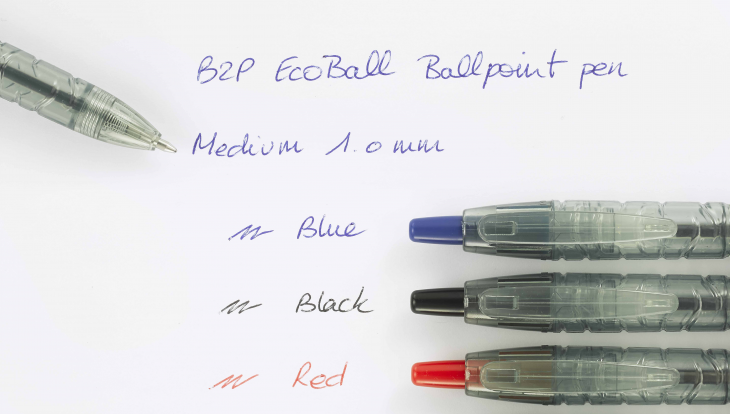 B2P EcoBall Ballpoint pen
Medium 1.0 mm
Blue
Black
Red